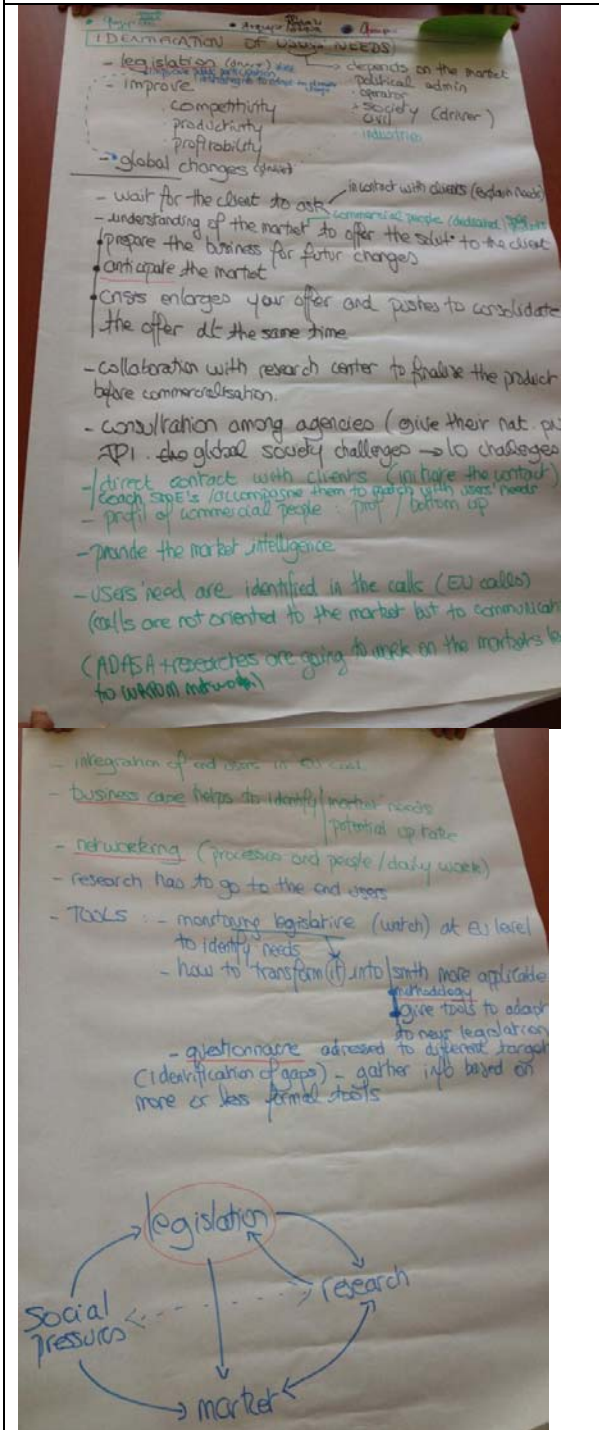 IDENTIFICATION OF NEEDS
- legislation (driver)
depends on the market
- improve
political admin
operator
competitivity
society (driver)
productivity
civil
industries
profitability
global changes (driver)
- wait for the client to ask
in contact with clients (explain needs)
commercial people (dedicated)
- understanding of the market to offer the solut° to the client
prepare the business for futur changes
anticipate the market
crisis enlarges your offer and pushes to consolidate
the offer at the same time
- collaboration with research center to finalise the product
before commercialisation.
- consultation among agencies (give their nat.
global society challenges → 10 challenges
- direct contact with clients (initiate the contact)
coach SME's / accompagne them to match with users' needs
- profil of commercial people : prof / bottom up
- provide the market intelligence
- users' need are identified in the calls (EU calls)
(calls are not oriented to the market but to
(ADASA + researches are going to work on the markets
to network)
- integration of end users in EU
- business case helps to identify market needs
potential up take
- networking (processes and people / daily work)
- research has to go to the end users
- TOOLS : - monitoring legislative (watch) at EU level
to identify needs
- how to transform (it) into smth more applicable
methodology
give tools to adapt
to new legislation
- questionnaire adressed to different target
(identification of gaps) - gather info based on
more or less formal tools
legislation
research
social
pressures
market